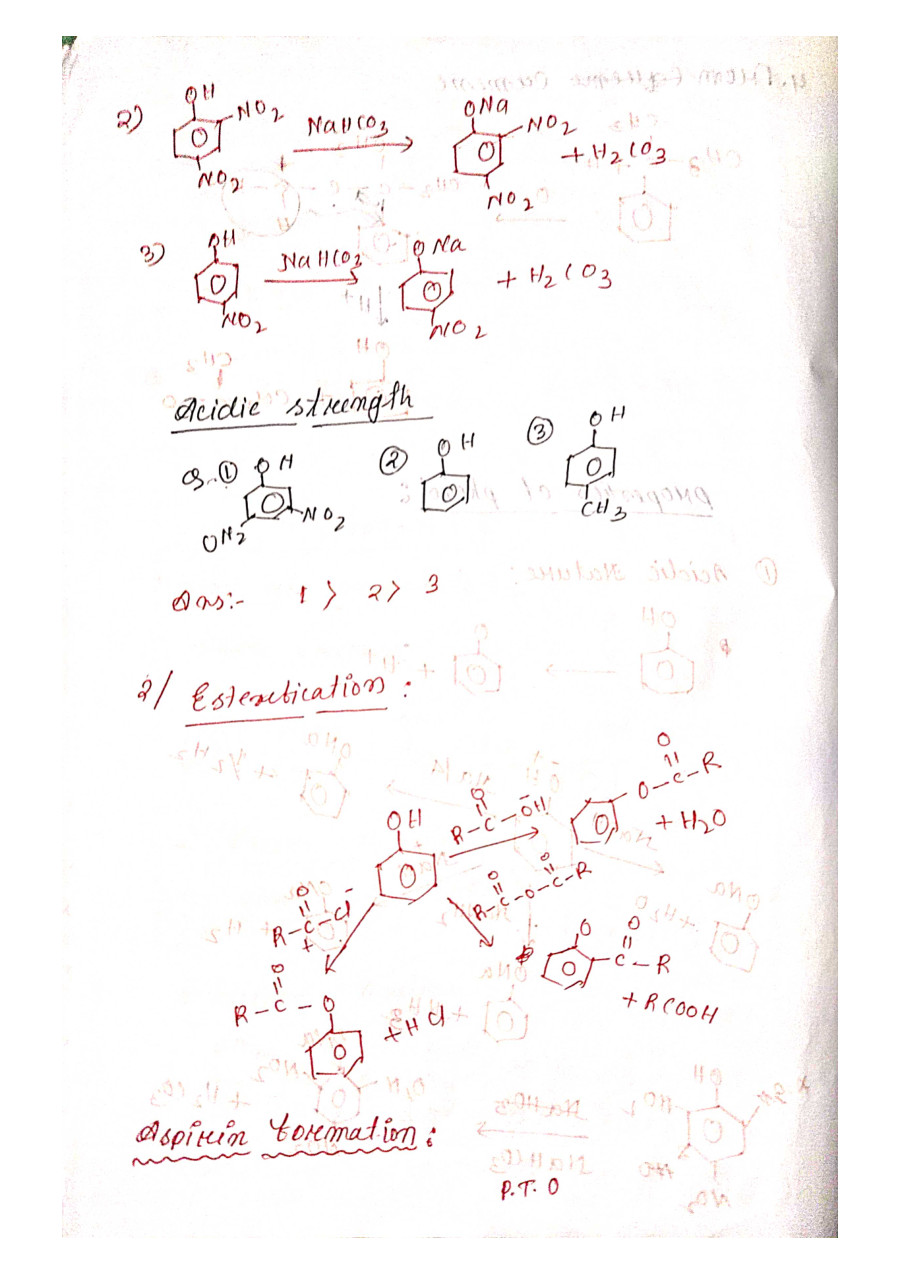 2)
OH
NO2
NO2
NaHCO3
ONa
NO2
NO2
+ H2CO3
3)
OH
NO2
NaHCO3
O Na
NO2
+ H2CO3
Acidic strength
Q. ① OH
NO2
ON2
② OH
③ OH
CH3
Ans:- 1 > 2 > 3
2/ Esterification :
OH
R-C-OH
O
O-C-R
O
+ H2O
R-C-O-C-R
O O
O
C-R
O
+ RCOOH
R-C-Cl
O
+ -
R-C-O
O
+ HCl
Aspirin formation :
P.T.O